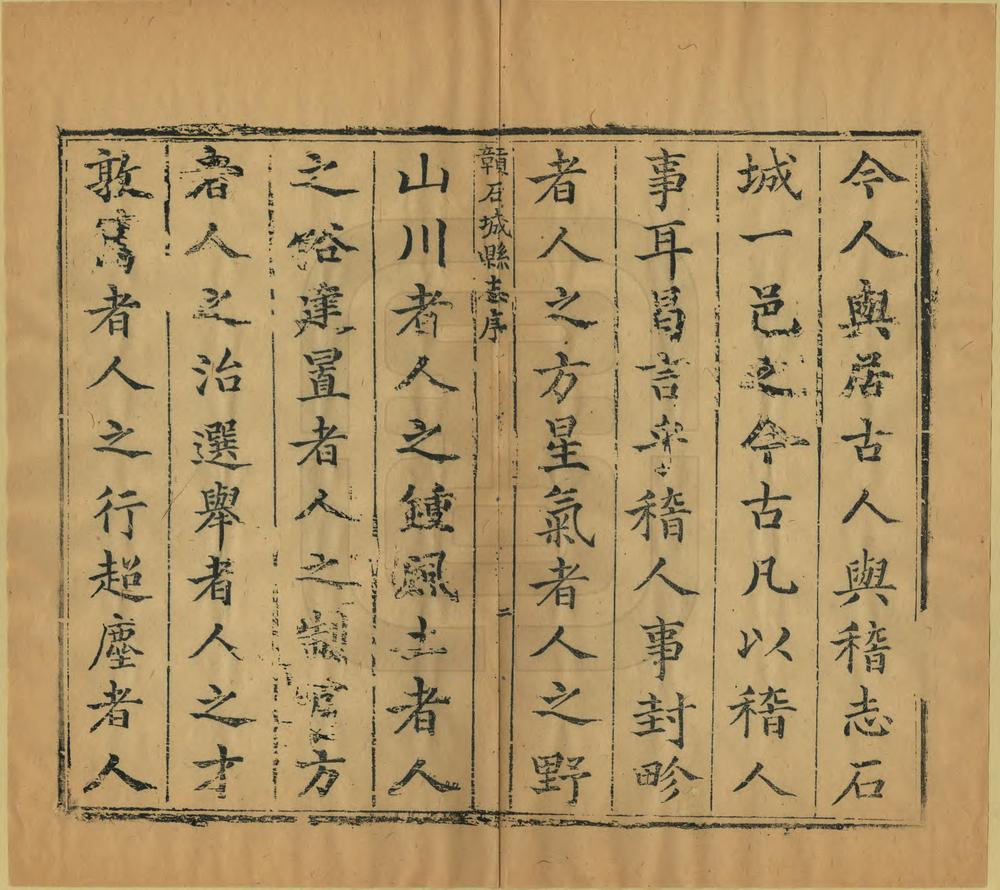 今人與居古人與稽志石
城一邑之今古凡以稽人
事耳曷言乎稽人事封畛
者人之方星氣者人之野
贛石城縣志序
二
山川者人之鍾風土者人
之俗建置者人之制官方
者人之治選舉者人之才
敦篤者人之行超塵者人